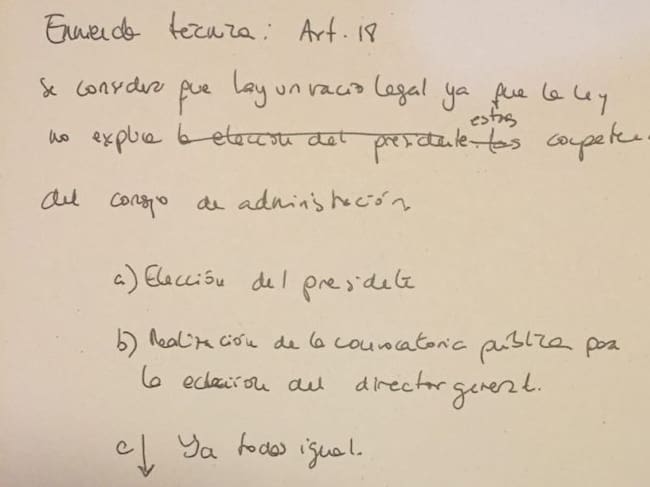 Enmienda tecnica: Art. 18
Se considera que hay un vacio legal ya que la ley
no explica la elección del presidente las estas competen
del consejo de administración
a) Elección del presidente
b) Realización de la convocatoria pública para
la elección del director general.
c) ↓ Ya todo igual.